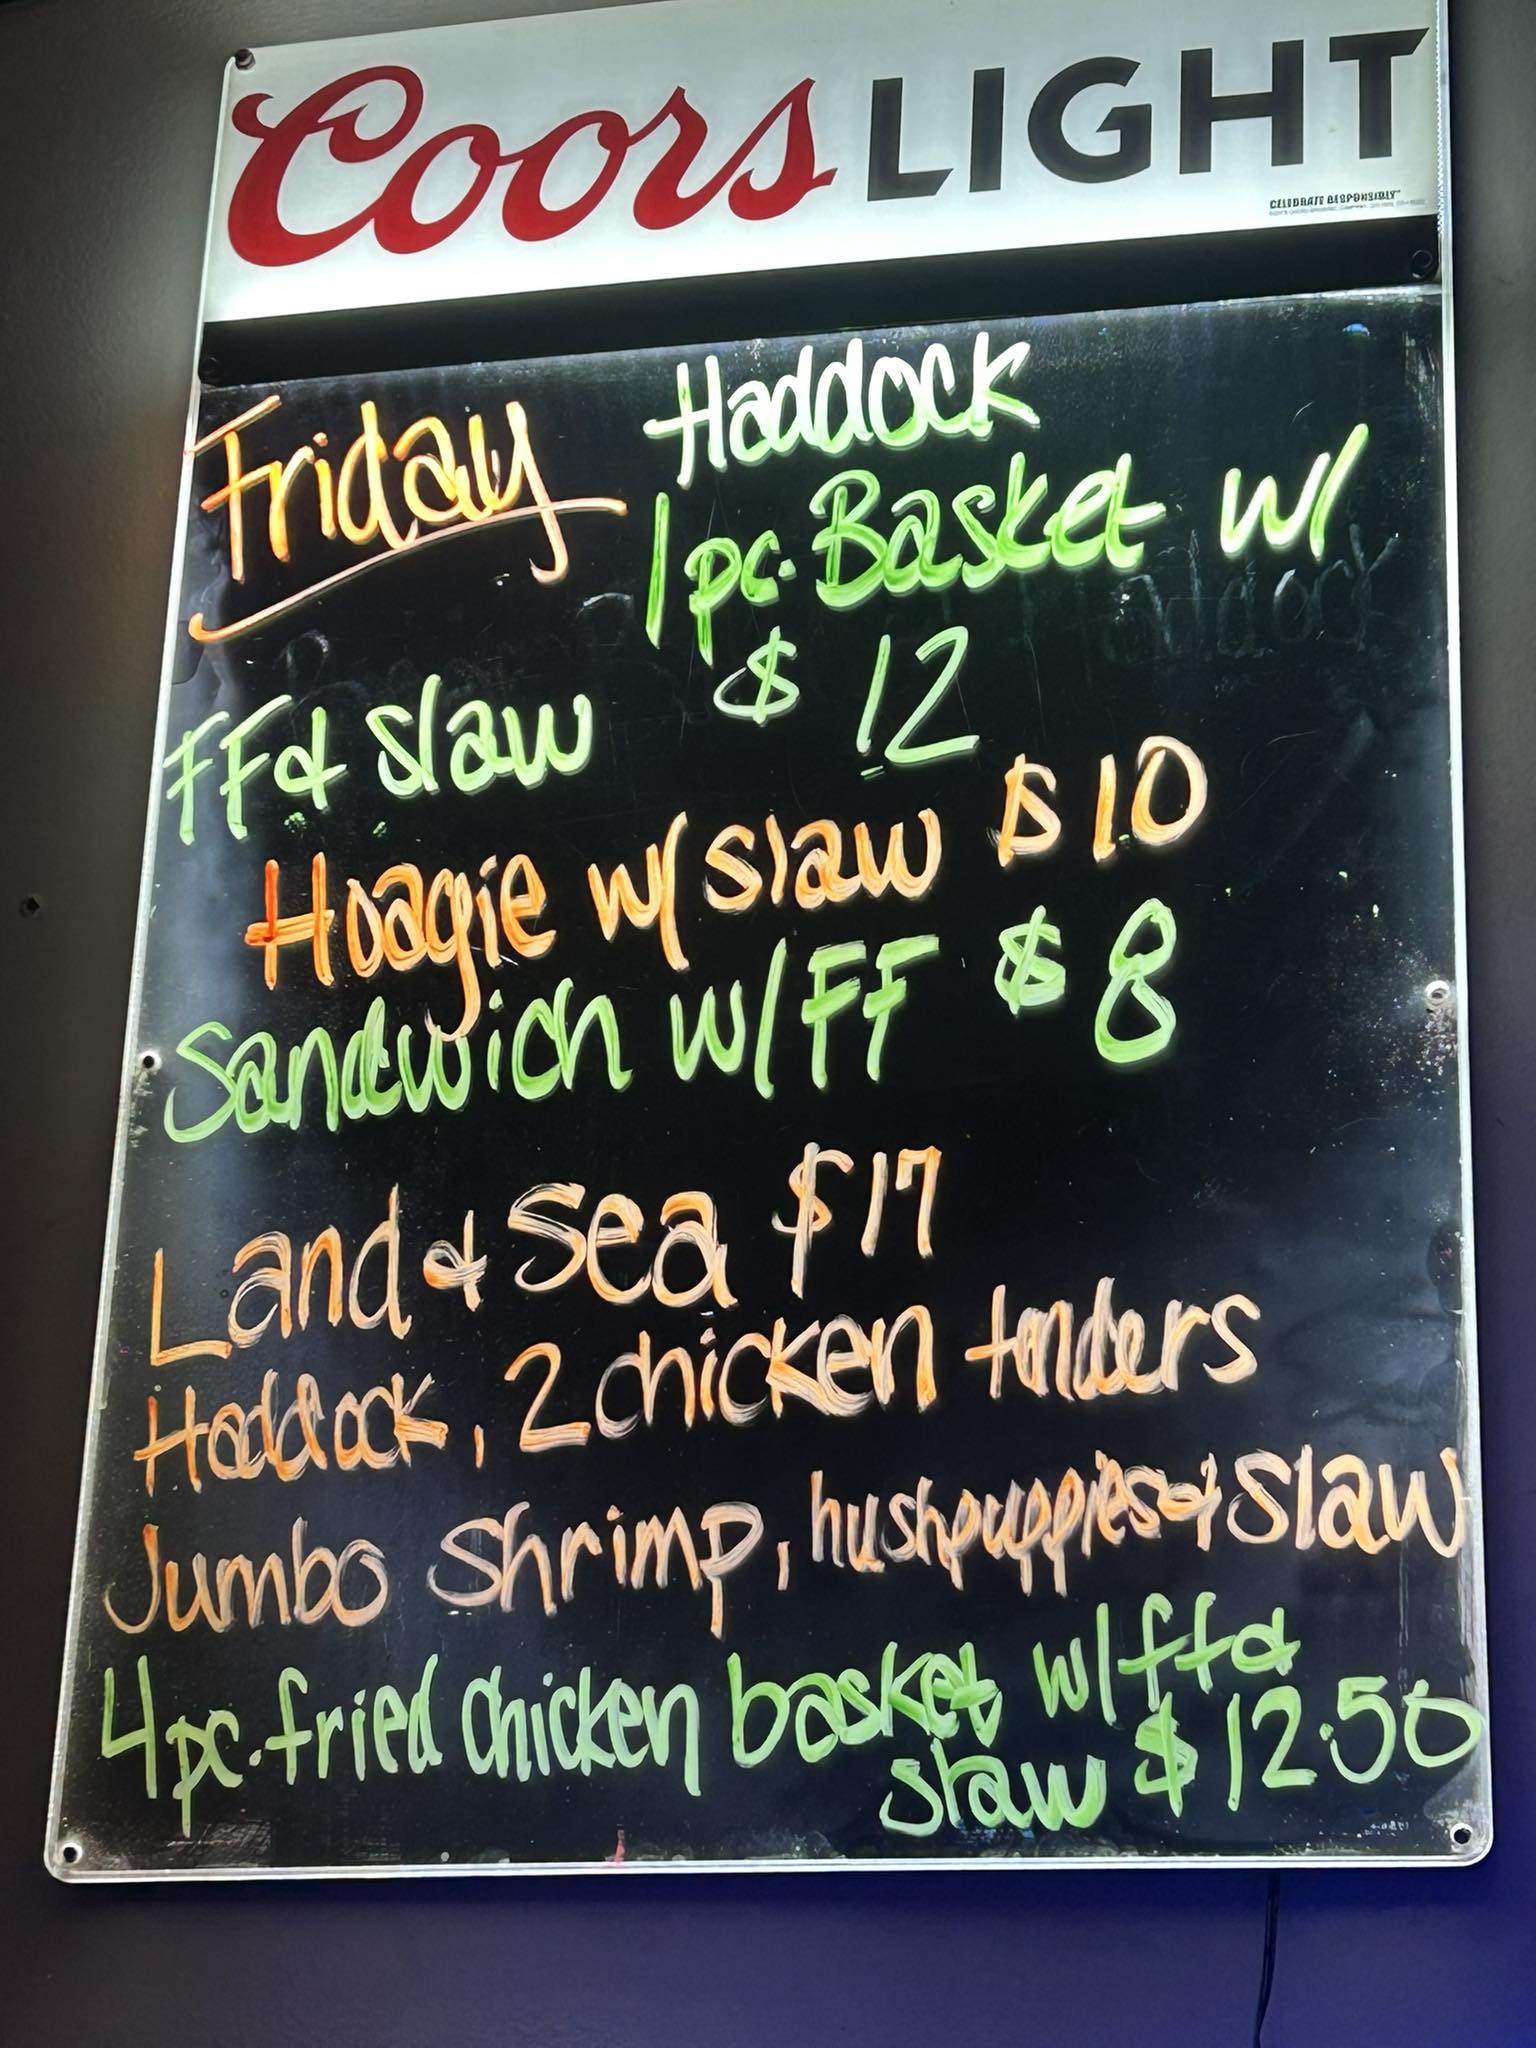 Coors LIGHT
CELEBRATE RESPONSIBLY
Friday
Haddock
1pc. Basket w/
FF & slaw $ 12
Hoagie w/ slaw $10
Sandwich w/ FF $8
Land & Sea $17
Haddock, 2 chicken tenders
Jumbo Shrimp, hushpuppies & slaw
4pc. fried chicken basket w/ ff &
slaw $12.50